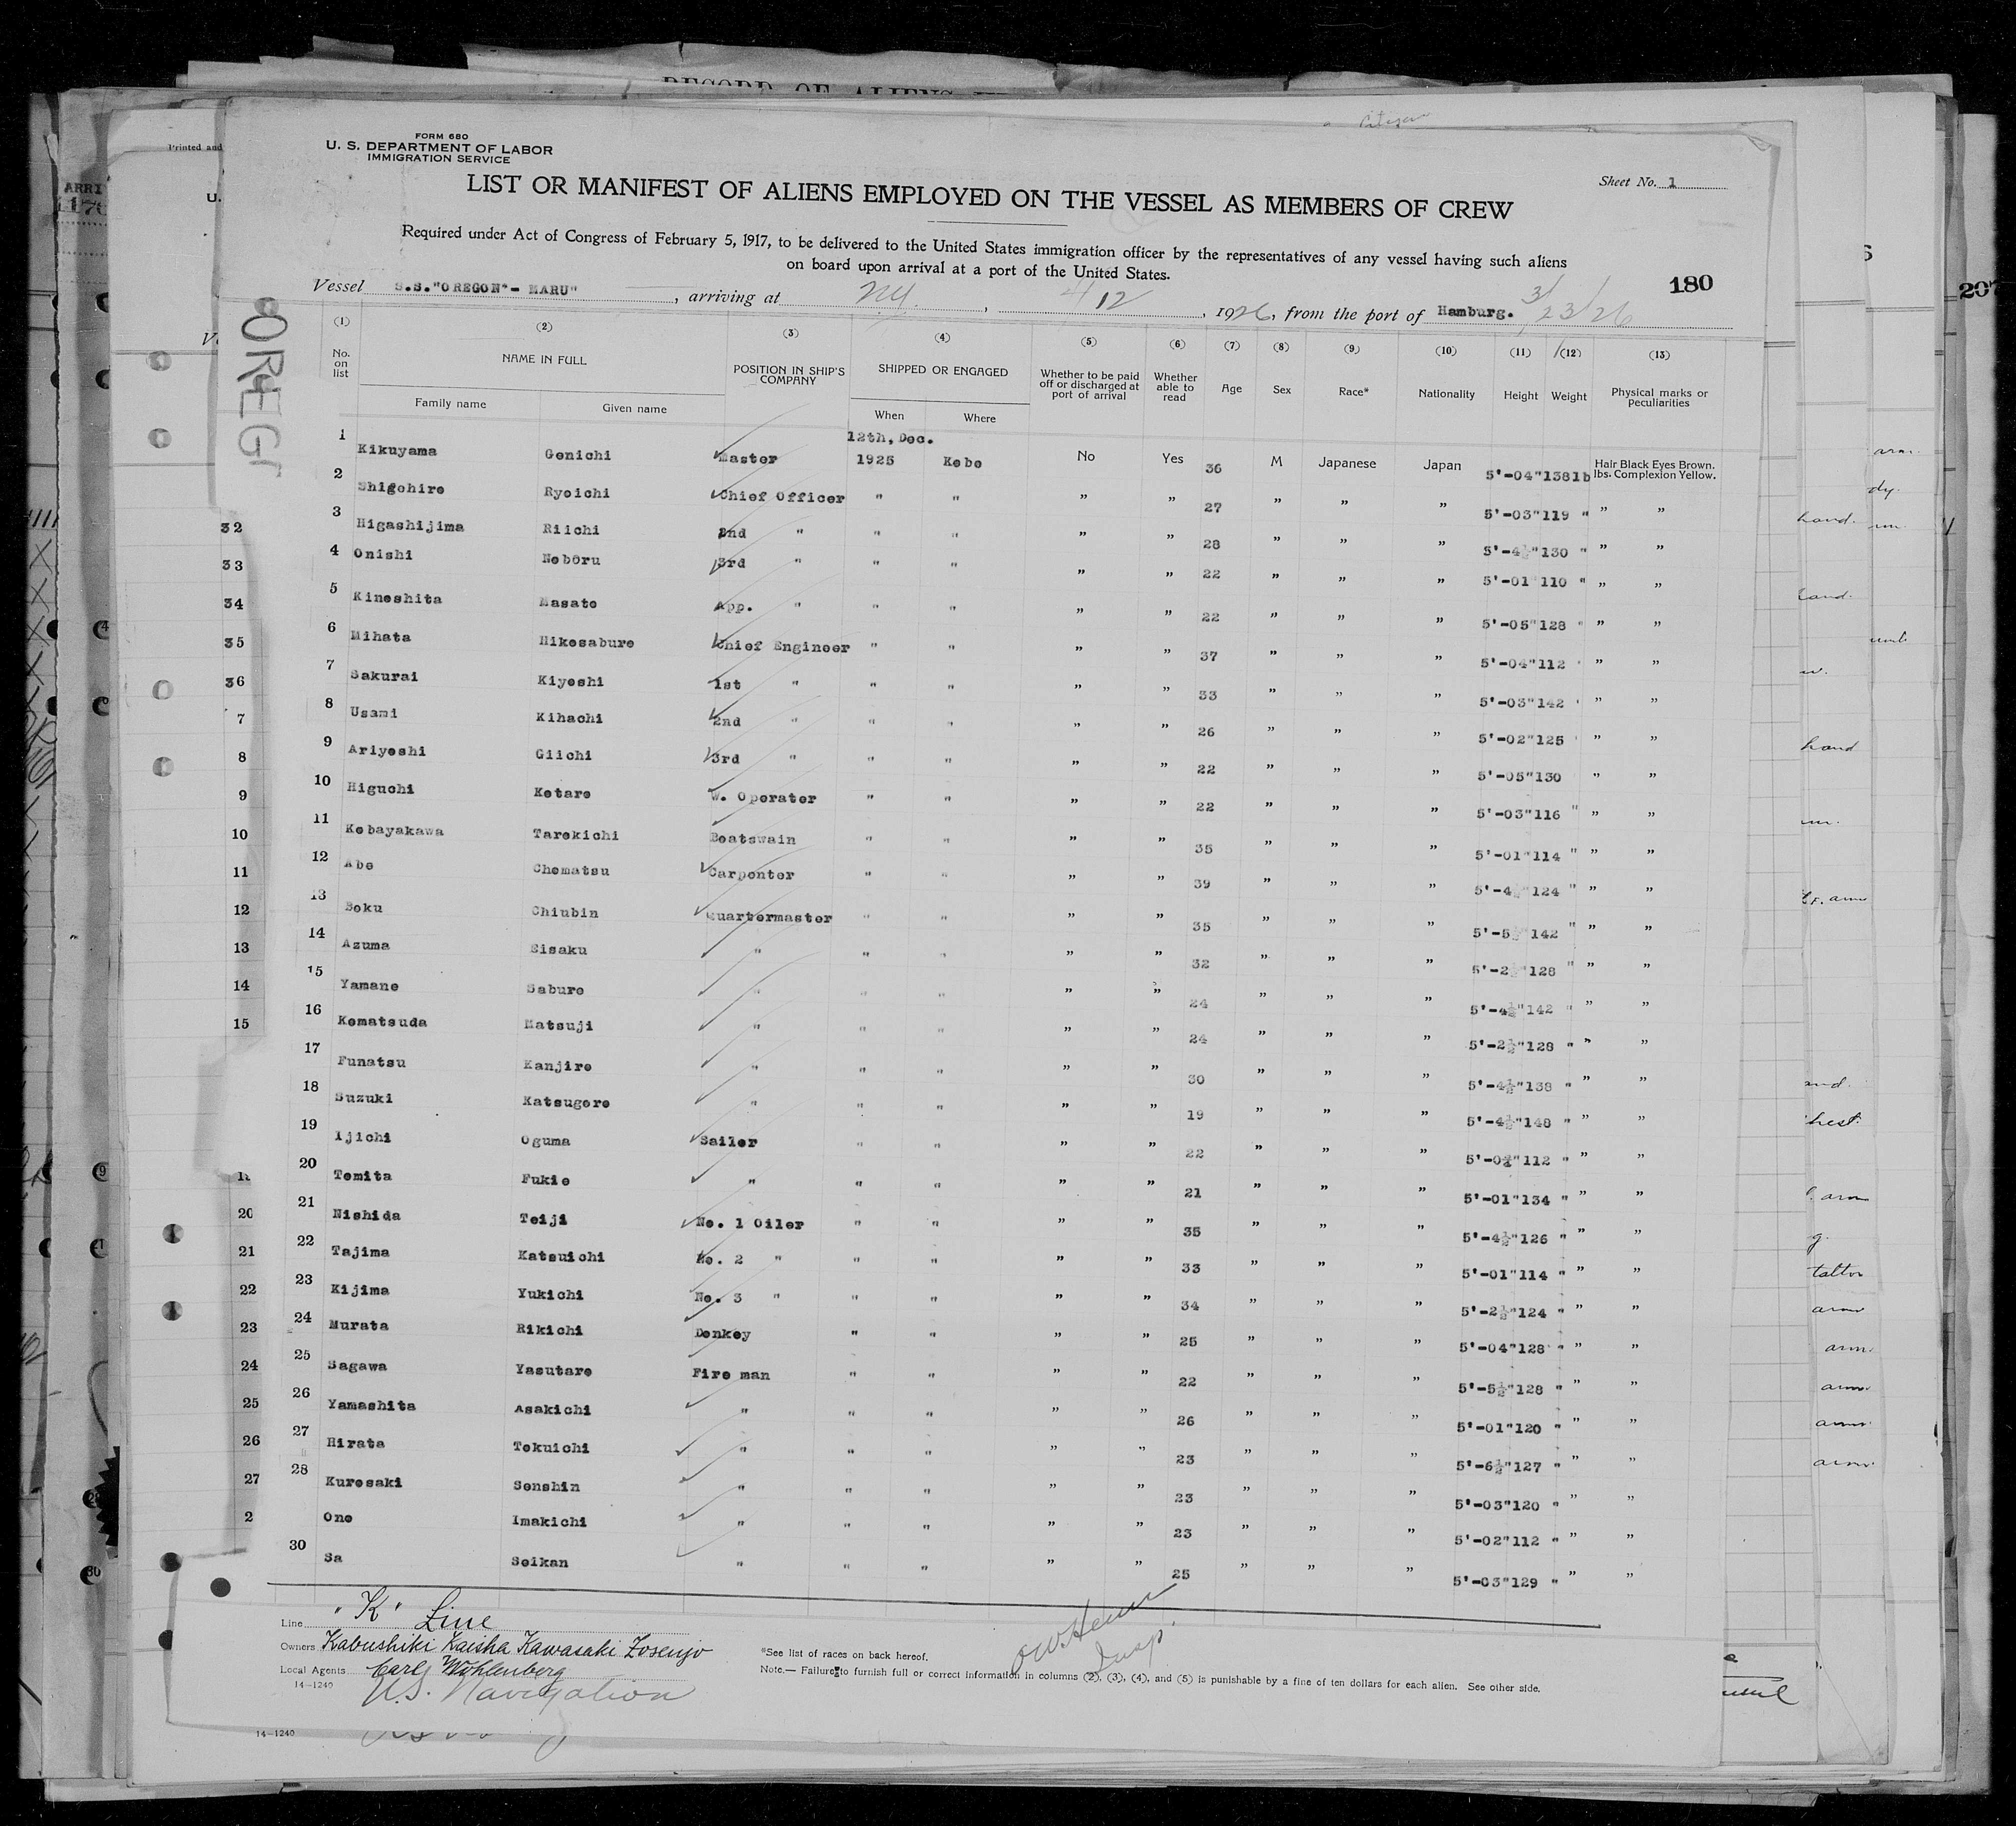 RECORD OF ALIENS
Citizen
FORM 680
U. S. DEPARTMENT OF LABOR
IMMIGRATION SERVICE
Sheet No. 1
LIST OR MANIFEST OF ALIENS EMPLOYED ON THE VESSEL AS MEMBERS OF CREW
Required under Act of Congress of February 5, 1917, to be delivered to the United States immigration officer by the representatives of any vessel having such aliens
on board upon arrival at a port of the United States.
180
Vessel S.S."OREGON"- MARU" , arriving at N.Y. , 4/12 , 1926, from the port of Hamburg. 3/23/26
(1) (2) (3) (4) (5) (6) (7) (8) (9) (10) (11) (12) (13)
No. on list NAME IN FULL POSITION IN SHIP'S COMPANY SHIPPED OR ENGAGED Whether to be paid off or discharged at port of arrival Whether able to read Age Sex Race* Nationality Height Weight Physical marks or peculiarities
Family name Given name When Where
12th, Dec.
1 Kikuyama Genichi Master 1925 Kobe No Yes 36 M Japanese Japan 5'-04" 138lb Hair Black Eyes Brown.
lbs. Complexion Yellow.
2 Shigehiro Ryoichi Chief Officer " " " " 27 " " " 5'-03" 119 " " "
3 Higashijima Riichi 2nd " " " " " 28 " " " 5'-4½" 130 " " "
4 Onishi Noboru 3rd " " " " " 22 " " " 5'-01 110 " " "
5 Kinoshita Masato App. " " " " " 22 " " " 5'-05" 128 " " "
6 Mihata Hikosaburo Chief Engineer " " " " 37 " " " 5'-04" 112 " " "
7 Sakurai Kiyoshi 1st " " " " " 33 " " " 5'-03" 142 " " "
8 Usami Kihachi 2nd " " " " " 26 " " " 5'-02" 125 " " "
9 Ariyoshi Giichi 3rd " " " " " 22 " " " 5'-05" 130 " "
10 Higuchi Kotaro W. Operator " " " " 22 " " " 5'-03" 116 " " "
11 Kobayakawa Tarokichi Boatswain " " " " 35 " " " 5'-01" 114 " " "
12 Abe Chomatsu Carpenter " " " " 39 " " " 5'-4 " 124 " " "
13 Boku Chiubin Quartermaster " " " " 35 " " " 5'-5 " 142 " " "
14 Azuma Eisaku " " " " " 32 " " " 5'-2 " 128 " " "
15 Yamane Saburo " " " " " 24 " " " 5'-4½" 142 " " "
16 Komatsuda Matsuji " " " " " 24 " " " 5'-2½" 128 " " "
17 Funatsu Kanjiro " " " " " 30 " " " 5'-4½" 138 " " "
18 Suzuki Katsugoro " " " " " 19 " " " 5'-4½" 148 " " "
19 Ijichi Oguma Sailor " " " " 22 " " " 5'-0½" 112 " " "
20 Tomita Fukio " " " " " 21 " " " 5'-01" 134 " " "
21 Nishida Teiji No. 1 Oiler " " " " 35 " " " 5'-4½" 126 " " "
22 Tajima Katsuichi No. 2 " " " " " 33 " " " 5'-01" 114 " " "
23 Kijima Yukichi No. 3 " " " " " 34 " " " 5'-2½" 124 " " "
24 Murata Rikichi Donkey " " " " 25 " " " 5'-04" 128 " " "
25 Sagawa Yasutaro Fire man " " " " 22 " " " 5'-5½" 128 " " "
26 Yamashita Asakichi " " " " " 26 " " " 5'-01" 120 " " "
27 Hirata Tokuichi " " " " " 23 " " " 5'-6½" 127 " " "
28 Kurosaki Senshin " " " " " 23 " " " 5'-03" 120 " " "
Ono Imakichi " " " " " 23 " " " 5'-02" 112 " " "
30 Sa Seikan " " " " " 25 " " " 5'-03" 129 " " "
Line "K" Line
Owners Kabushiki Kaisha Kawasaki Zosenjo
Local Agents Carl Wohlenberg
U.S. Navigation
14—1240
*See list of races on back hereof.
Note.— Failure to furnish full or correct information in columns (2), (3), (4), and (5) is punishable by a fine of ten dollars for each alien. See other side.
Insp.
14—1240
Printed and
ARRI
U.
OREG
32
33
34
35
36
7
8
9
10
11
12
13
14
15
20
21
22
23
24
25
26
27
2
207
hand.
hand
arm
arm
arm
arm